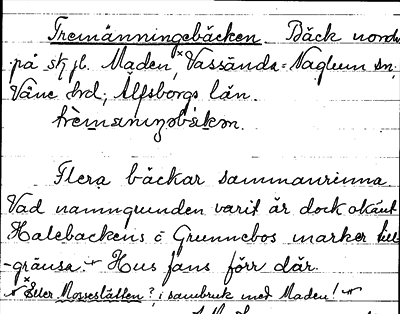 Tremänningebäcken. Bäck nord
på sk. bl. Maden,× Vassända-Naglum sn.
Väne hrd; Älfsborgs län.
trèmæninzəbækən.
Flera bäckar sammanrinna
Vad namngrunden varit är dock okänt
Halebackens o Grunnebos marker till-
-gränsa. Hus fans förr där.
× Eller Mosseslätten? i sambruk med Maden!